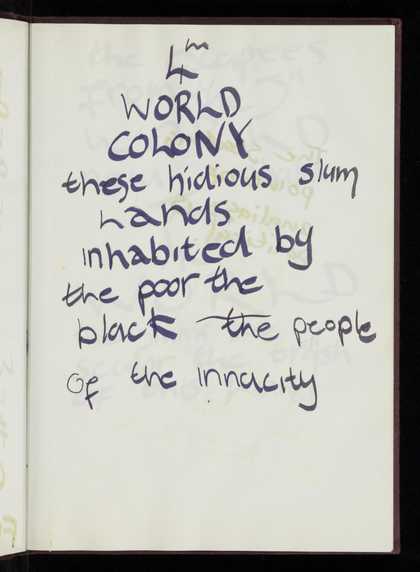 4m
WORLD
COLONY
these hidious slum
hands
inhabited by
the poor the
black the people
of the innacity